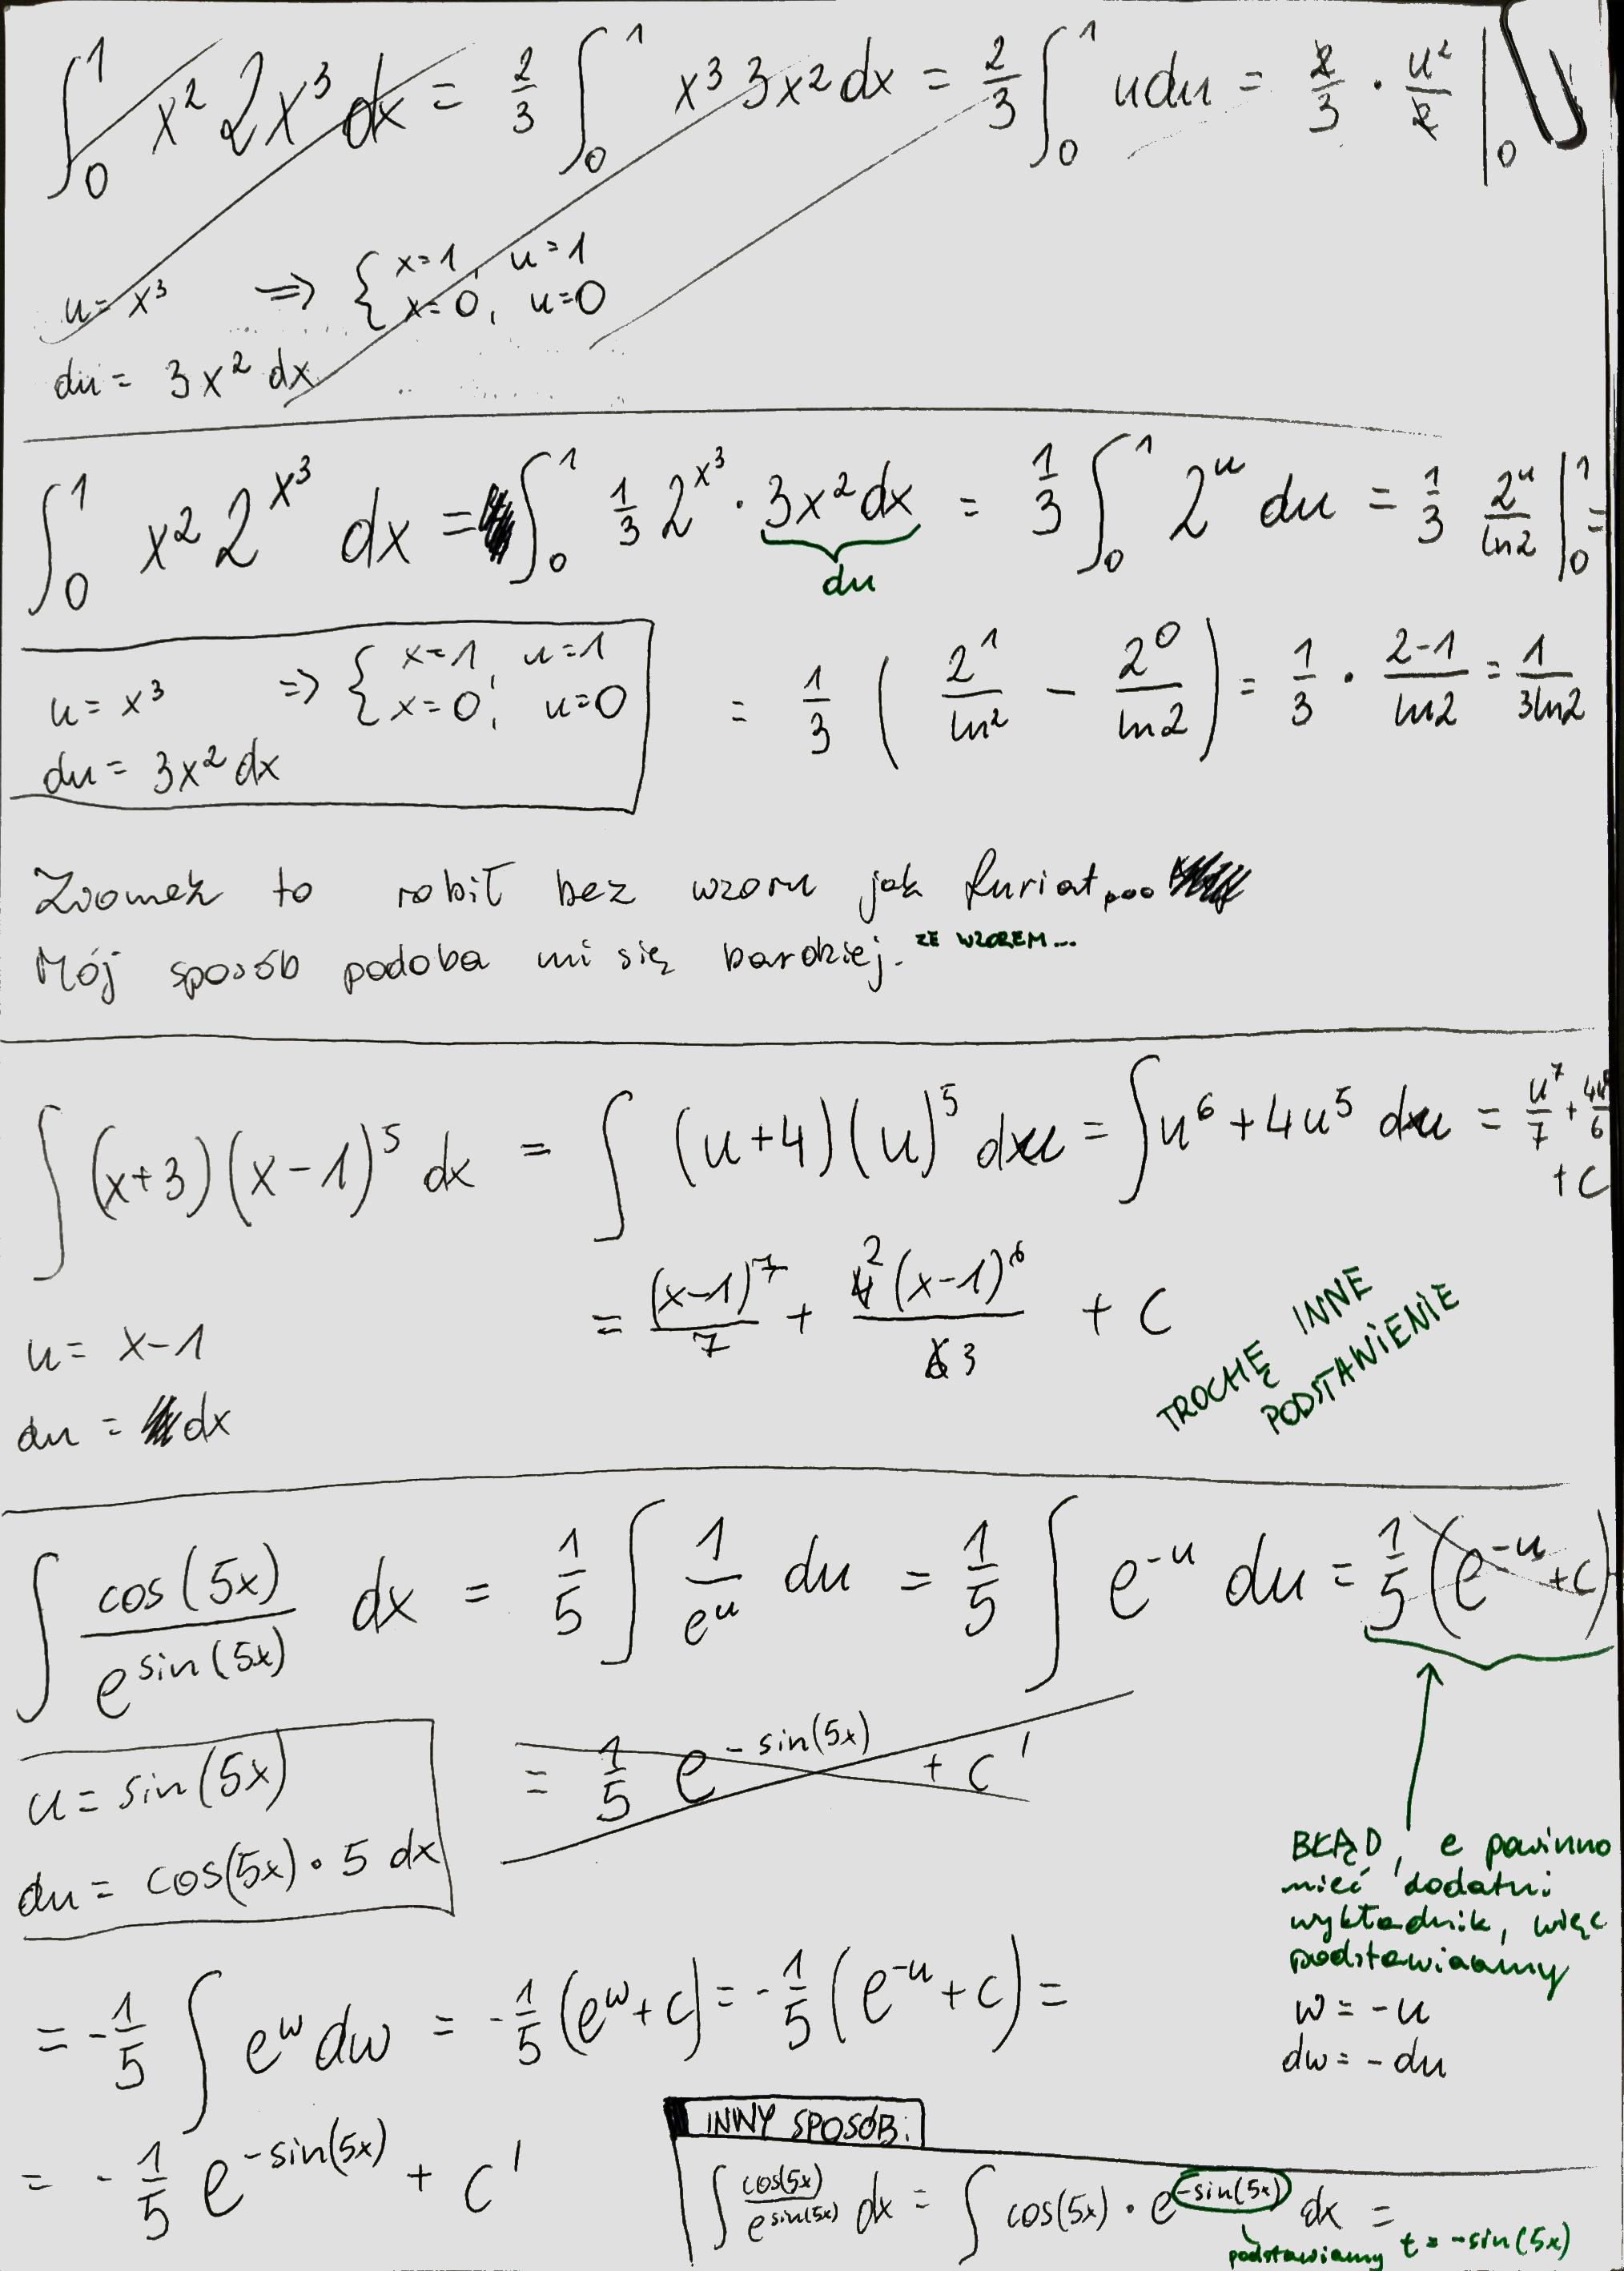 ∫₀¹ x² 2x³ dx = 2/3 ∫₀¹ x³ 3x² dx = 2/3 ∫₀¹ u du = 2/3 · u²/2 |₀
u = x³ ⇒ { x=1, u=1
x=0, u=0
du = 3x² dx
∫₀¹ x² 2^(x³) dx = ∫₀¹ 1/3 2^(x³) · 3x² dx = 1/3 ∫₀¹ 2^u du = 1/3 2^u/ln2 |₀¹ =
du
u = x³ ⇒ { x=1, u=1
x=0, u=0
du = 3x² dx
= 1/3 ( 2¹/ln2 − 2⁰/ln2 ) = 1/3 · (2−1)/ln2 = 1/(3ln2)
to robił bez wzoru jak
Mój sposób podoba mi się bardziej. ZE WZOREM...
∫ (x+3)(x−1)⁵ dx = ∫ (u+4)(u)⁵ du = ∫ u⁶ + 4u⁵ du = u⁷/7 + 4u⁶/6
+ C
= (x−1)⁷/7 + 2(x−1)⁶/3 + C
u = x−1
du = dx
TROCHĘ INNE
PODSTAWIENIE
∫ cos(5x)/e^(sin(5x)) dx = 1/5 ∫ 1/e^u du = 1/5 ∫ e^(−u) du = 1/5 (e^(−u) + C)
u = sin(5x)
du = cos(5x) · 5 dx
= 1/5 e^(−sin(5x)) + C'
BŁĄD, e powinno
mieć dodatni
wykładnik, więc
podstawiamy
w = −u
dw = −du
= −1/5 ∫ e^w dw = −1/5 (e^w + C) = −1/5 (e^(−u) + C) =
= −1/5 e^(−sin(5x)) + C'
INNY SPOSÓB:
∫ cos(5x)/e^(sin(5x)) dx = ∫ cos(5x) · e^(−sin(5x)) dx =
podstawiamy t = −sin(5x)